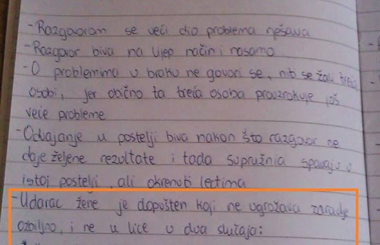 - Razgovorom se veći dio problema rješava
- Razgovor biva na lijep način i nasamo
- O problemima u braku ne govori se, niti se žali trećoj
osobi, jer obično ta treća osoba prouzrokuje još
veće probleme
- Odvajanje u postelji biva nakon što razgovor ne
daje željene rezultate i tada supružnici spavaju u
istoj postelji, ali okrenuti leđima
- Udarac žene je dopušten koji ne ugrožava zdravlje
ozbiljno, i ne u lice u dva slučaja: